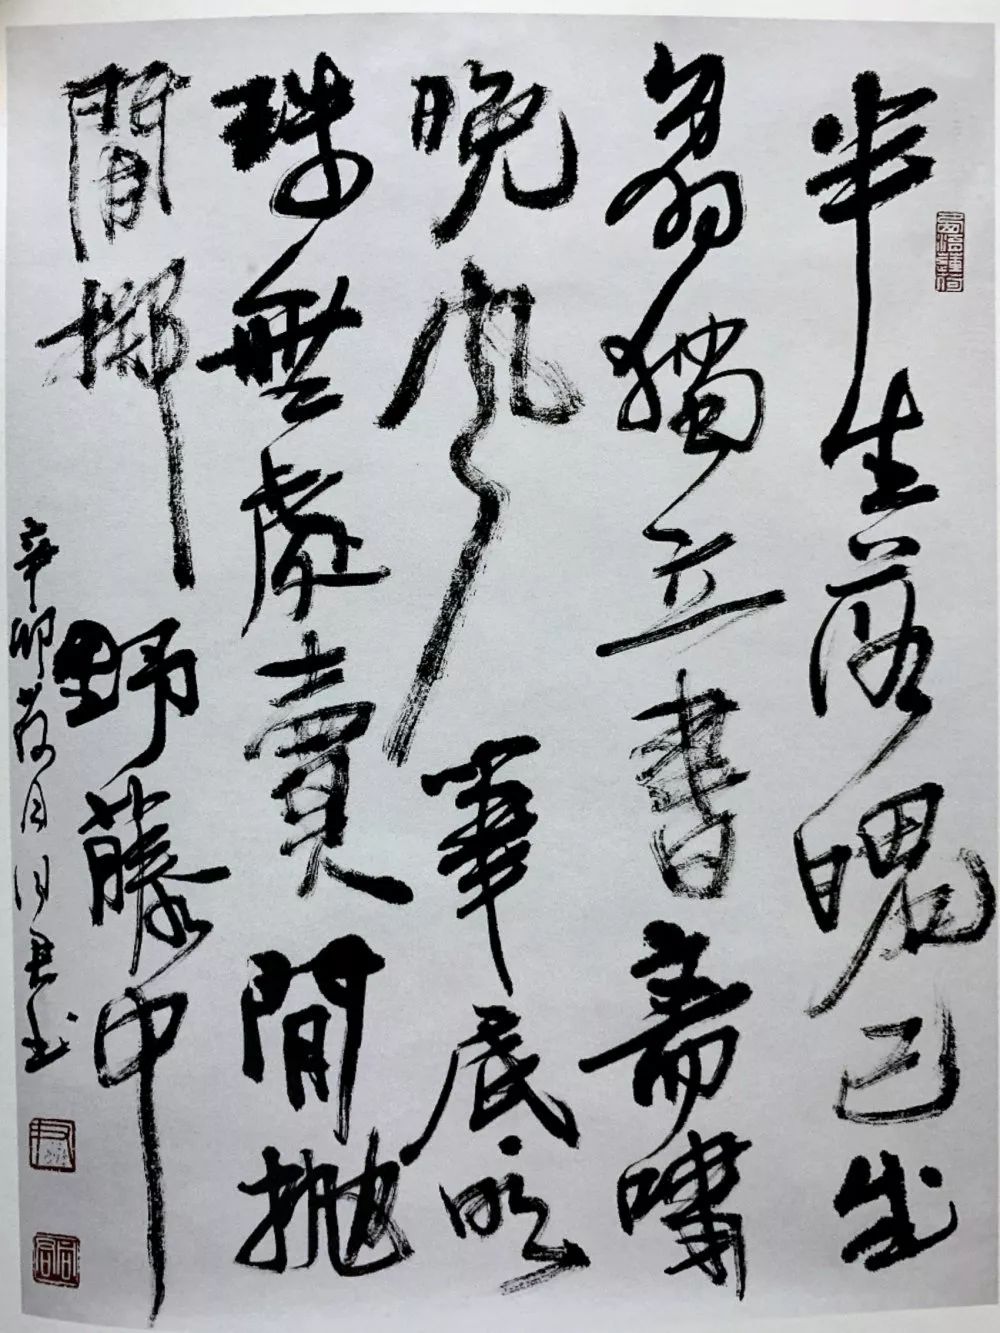 半生落魄已成
翁獨立書齋嘯
晚風筆底明
珠無處賣閒拋
閒擲野藤中
辛卯荷月